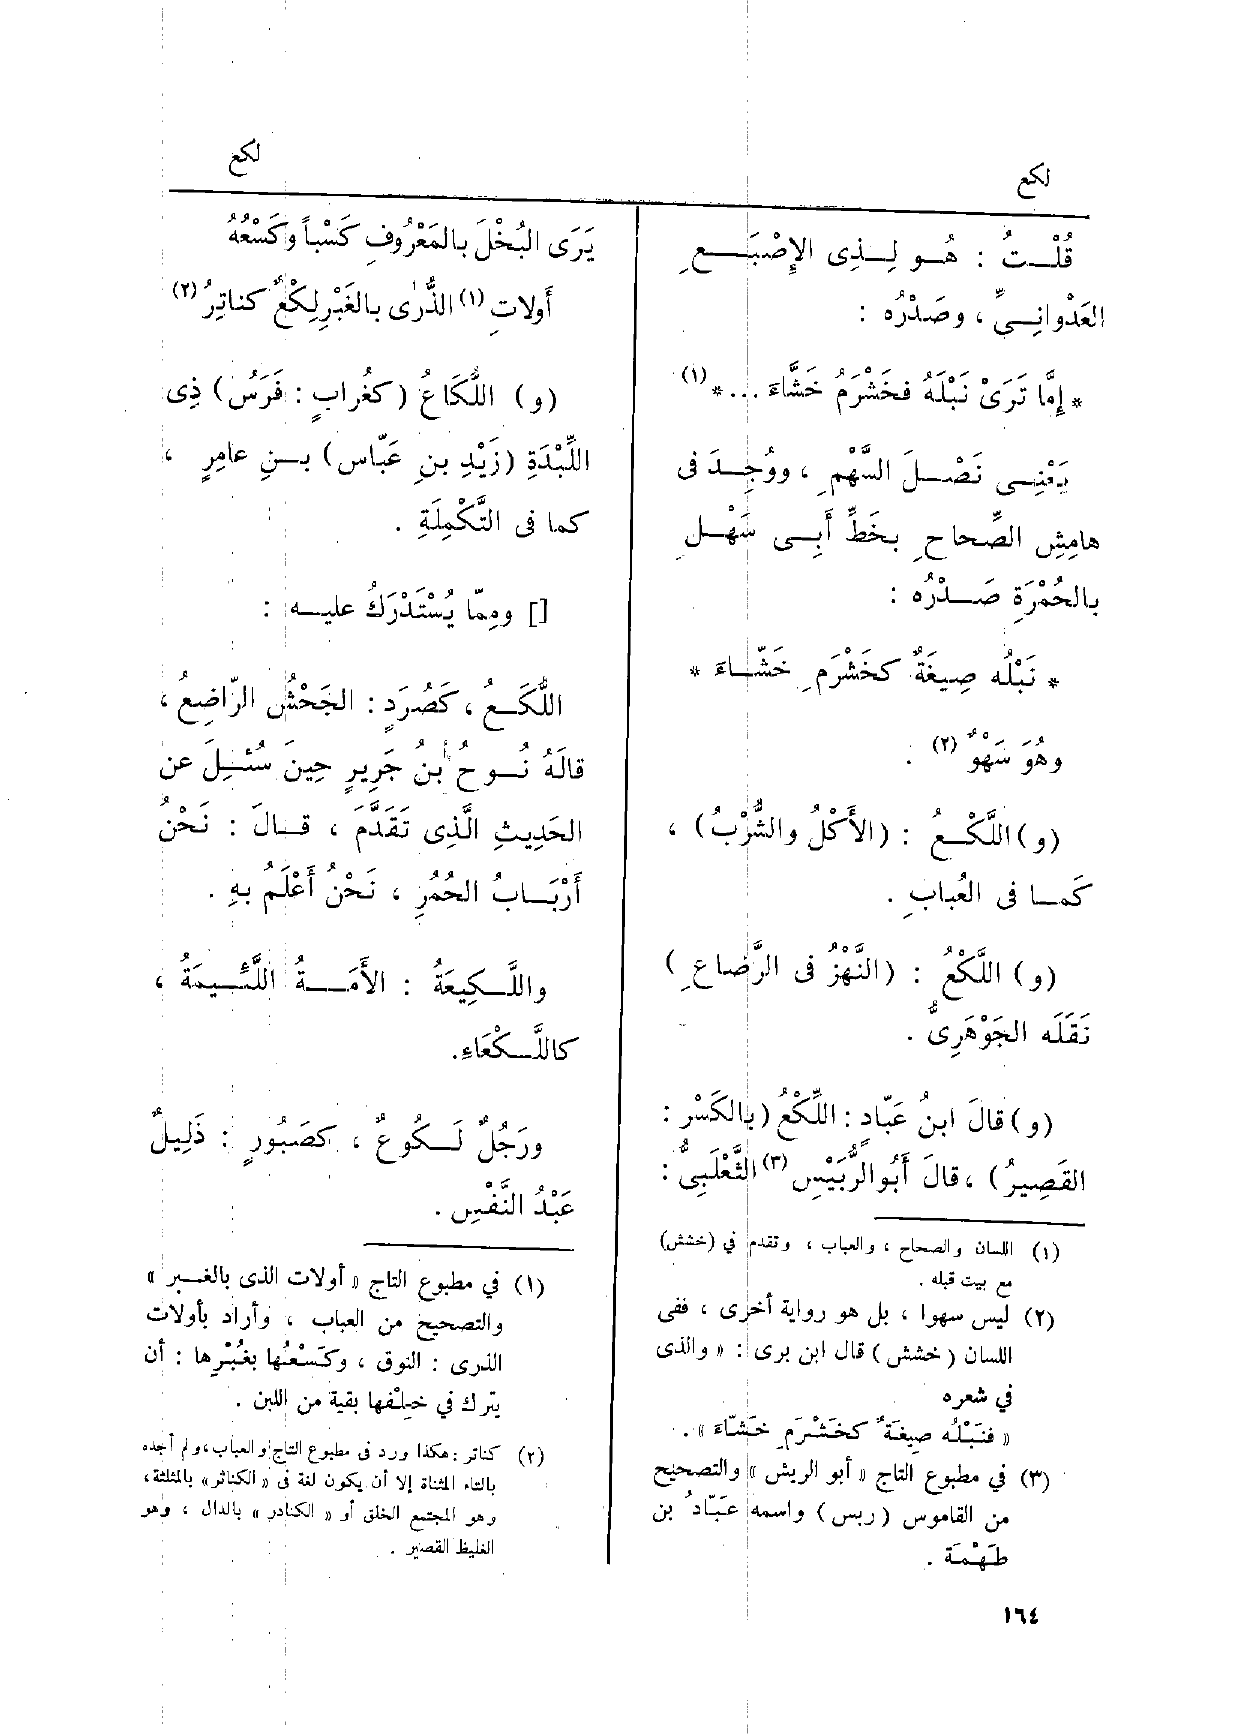 لكع
لكع
قُلْتُ : هُو لِذِى الإِصْبَعِ
العَدْوانِىِّ ، وصَدْرُه :
* إِمَّا تَرَىْ نَبْلَهُ فخَشْرَمُ خَشَّاءَ ...*(١)
يَعْنِى نَصْلَ السَّهْمِ ، ووُجِدَ فى
هامِشِ الصِّحاحِ بخَطِّ أَبِى سَهْلٍ
بالحُمْرَةِ صَدْرُه :
* نَبْلُه صِيغَةٌ كخَشْرَمِ خَشَّاءَ *
وهُوَ سَهْوٌ (٢) .
(و) اللَّكْعُ : (الأَكْلُ والشُّرْبُ) ،
كَما فى العُبابِ .
(و) اللَّكْعُ : (النَّهْزُ فى الرَّضاعِ)
نَقَلَه الجَوْهَرِىُّ .
(و) قالَ ابنُ عَبّادٍ : اللِّكْعُ (بالكَسْرِ :
القَصِيرُ) ، قالَ أَبُو الرُّبَيْسِ (٣) الثَّعْلَبِىُّ :
(١) اللسان والصحاح ، والعباب ، وتقدم في (خشش)
مع بيت قبله .
(٢) ليس سهوا ، بل هو رواية أخرى ، ففى
اللسان (خشش) قال ابن برى : « والذى
في شعره
« فنَبْلُه صِيغَةٌ كخَشْرَمِ خَشّاءَ » .
(٣) في مطبوع التاج « أبو الريش » والتصحيح
من القاموس (ربس) واسمه عَبّادُ بن
طَهْمَة .
يَرَى البُخْلَ بالمَعْرُوفِ كَسْباً وكَسْعُهُ
أَولاتِ (١) الذُّرٰى بالغَبْرِ لِكْعٌ كناتِرُ (٢)
(و) اللُّكَاعُ (كغُرابٍ : فَرَسُ) ذِى
اللِّبْدَةِ (زَيْدِ بنِ عَبّاس) بنِ عامِرٍ ،
كما فى التَّكْمِلَةِ .
[] ومِمّا يُسْتَدْرَكُ عليه :
اللُّكَعُ ، كَصُرَدٍ : الجَحْشُ الرّاضِعُ ،
قالَهُ نُوحُ بنُ جَرِيرٍ حِينَ سُئِلَ عن
الحَدِيثِ الَّذِى تَقَدَّمَ ، قالَ : نَحْنُ
أَرْبَابُ الحُمُرِ ، نَحْنُ أَعْلَمُ بهِ .
واللَّكِيعَةُ : الأَمَةُ اللَّئِيمَةُ ،
كاللَّكْعَاءِ .
ورَجُلٌ لَكُوعٌ ، كصَبُورٍ : ذَلِيلٌ
عَبْدُ النَّفْسِ .
(١) في مطبوع التاج « أولات الذى بالغبر »
والتصحيح من العباب ، وأراد بأولات
الذرى : النوق ، وكَسْعُها بغُبْرِها : أن
يترك في خِلْفها بقية من اللبن .
(٢) كناتر : هكذا ورد فى مطبوع التاج والعباب ، ولم أجده
بالتاء المثناة إلا أن يكون لغة فى « الكناثر » بالمثلثة ،
وهو المجتمع الخلق أو « الكنادر » بالدال ، وهو
الغليظ القصير .
١٦٤